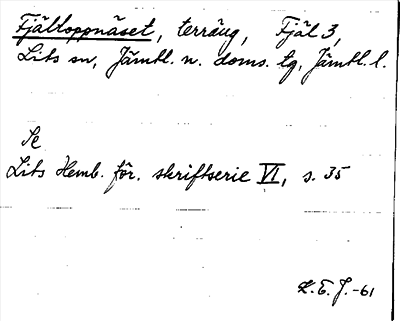 Fjälloppnäset, terräng, Fjäl 3,
Lits sn, Jämtl. n. doms. tg, Jämtl. l.
Se
Lits Hemb. för. skriftserie VI, s. 35
L. E. J. -61